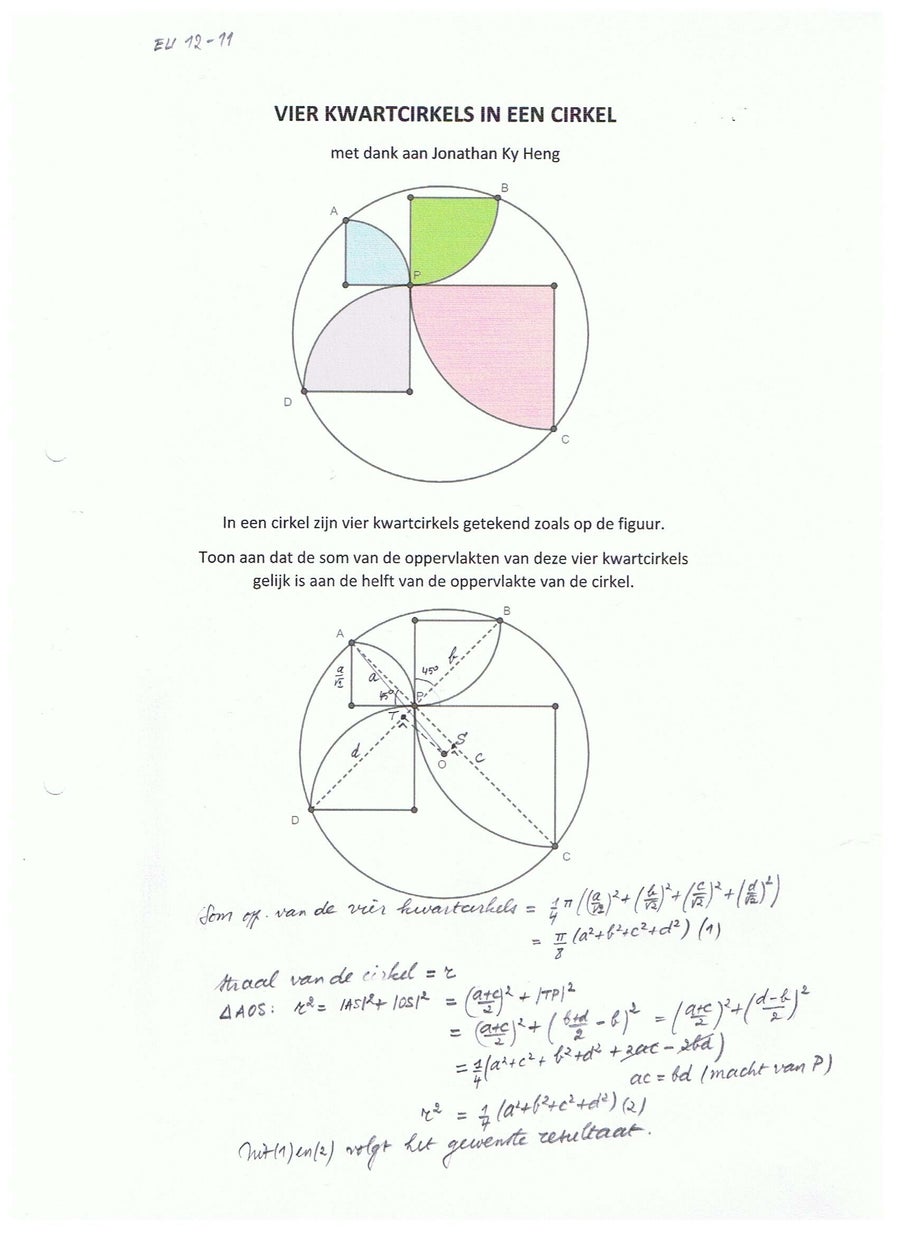 EU 12-11
VIER KWARTCIRKELS IN EEN CIRKEL
met dank aan Jonathan Ky Heng
A
B
P
D
C
In een cirkel zijn vier kwartcirkels getekend zoals op de figuur.
Toon aan dat de som van de oppervlakten van deze vier kwartcirkels
gelijk is aan de helft van de oppervlakte van de cirkel.
B
A
a/√2
a
45°
b
45°
P
T
S
d
c
O
D
C
Som op. van de vier kwartcirkels = 1/4 π ((a/√2)² + (b/√2)² + (c/√2)² + (d/√2)²)
= π/8 (a²+b²+c²+d²) (1)
straal van de cirkel = r
ΔAOS: r² = |AS|² + |OS|² = ((a+c)/2)² + |TP|²
= ((a+c)/2)² + ((b+d)/2 - b)² = ((a+c)/2)² + ((d-b)/2)²
= 1/4 (a²+c²+b²+d²+2ac-2bd)
ac = bd (macht van P)
r² = 1/4 (a²+b²+c²+d²) (2)
Uit (1) en (2) volgt het gewenste resultaat.